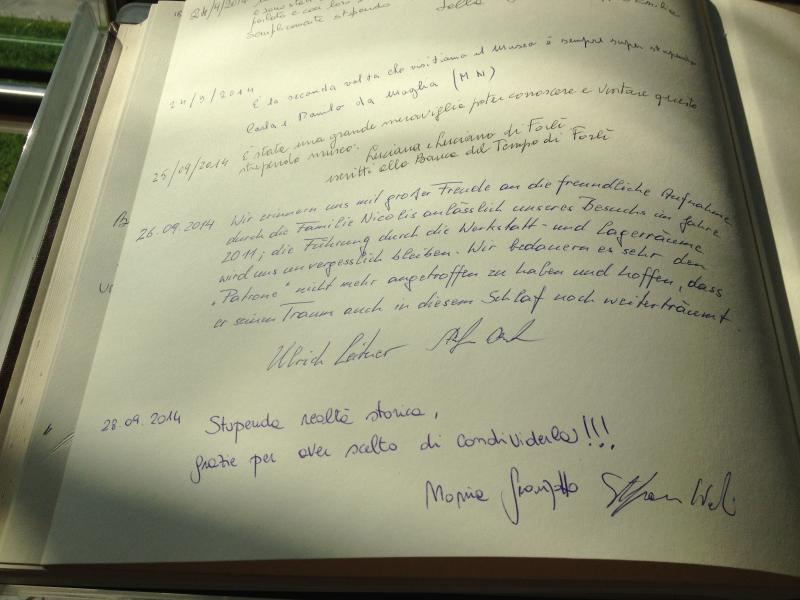 semplicemente stupendo della
24/9/2014 È la seconda volta che visitiamo il museo è sempre super stupendo
Carla e Danilo da Moglia (MN)
25/09/2014 È stata una grande meraviglia poter conoscere e visitare questo
stupendo museo. Luciana e Luciano di Forlì
iscritti alla Banca del Tempo di Forlì
26.09.2014 Wir erinnern uns mit großer Freude an die freundliche Aufnahme
durch die Familie Nicolis anlässlich unseres Besuchs im Jahre
2011; die Führung durch die Werkstatt- und Lagerräume
wird uns unvergesslich bleiben. Wir bedauern es sehr den
„Patrone“ nicht mehr angetroffen zu haben und hoffen, dass
er seinen Traum auch in diesem Schlaf noch weiterträumt.
Ulrich Leitner
28.09.2014 Stupenda realtà storica,
grazie per aver scelto di condividerla!!!